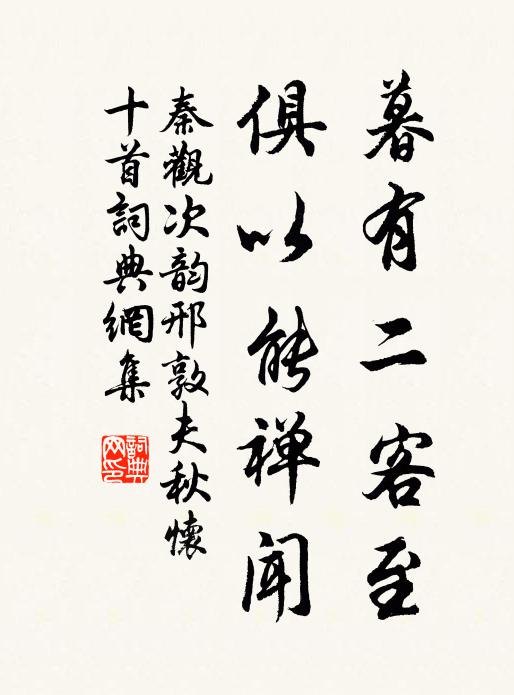 暮有二客至
俱以能禅闻
秦觀次韵邢敦夫秋懷
十首詞典網集
詞典
网印